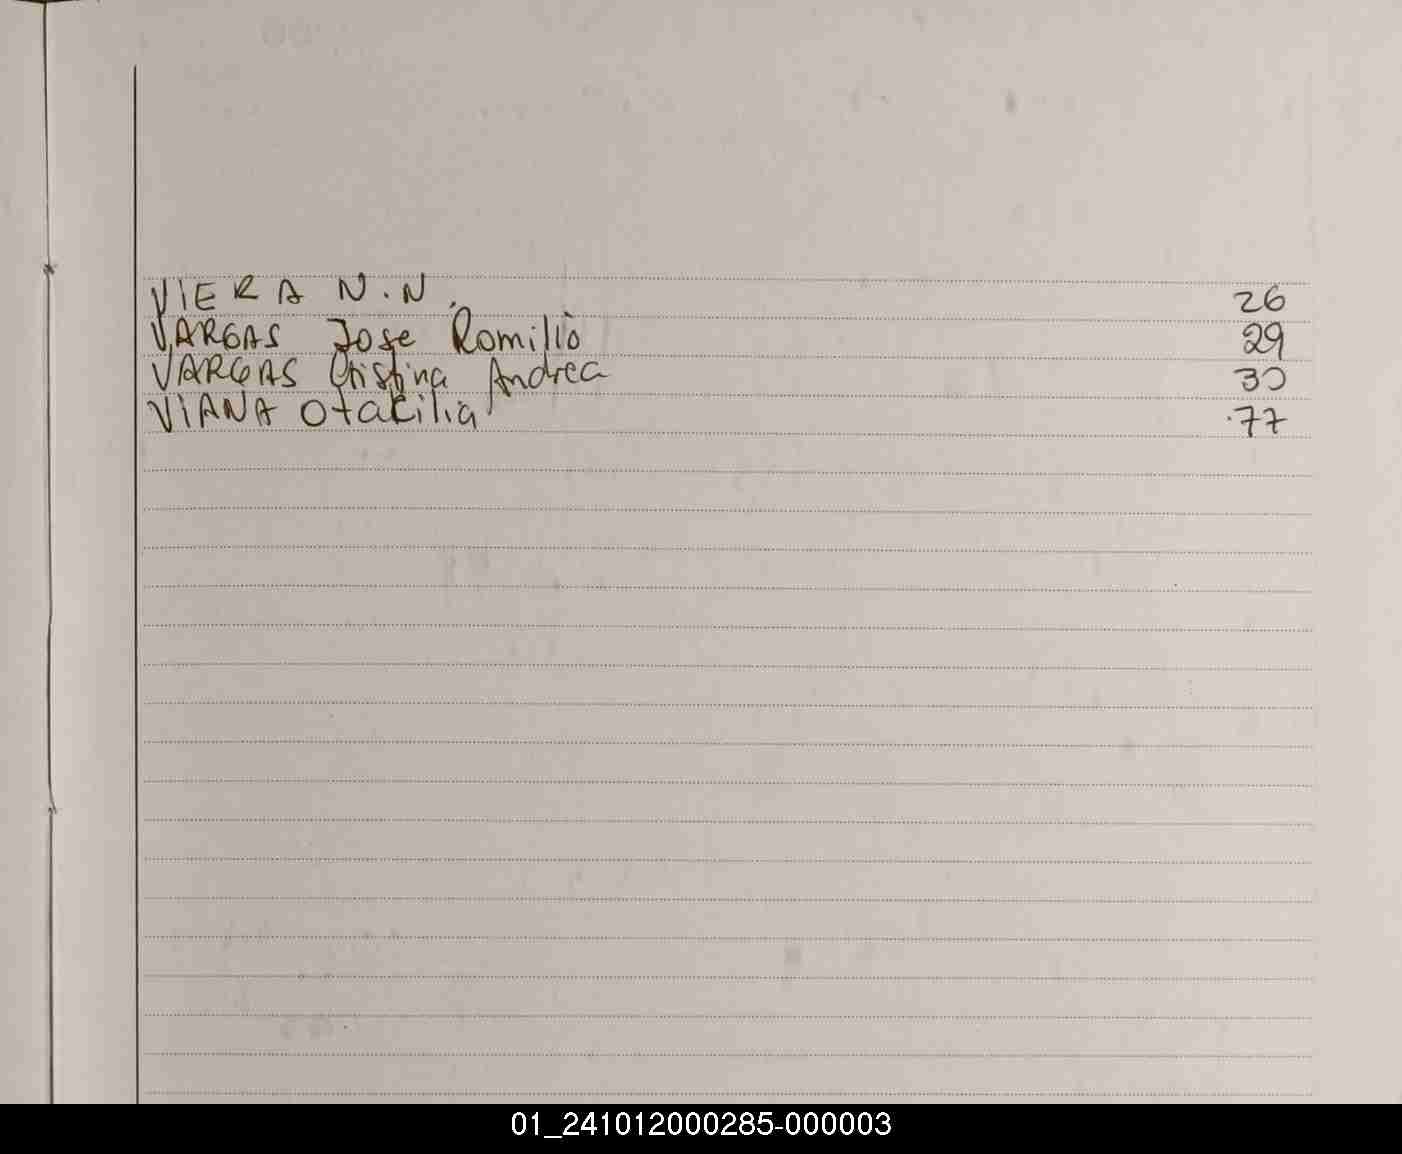 VIERA N.N. 26
VARGAS Jose Romilio 29
VARGAS Cristina Andrea 30
VIANA Otacilia 77
01_241012000285-000003